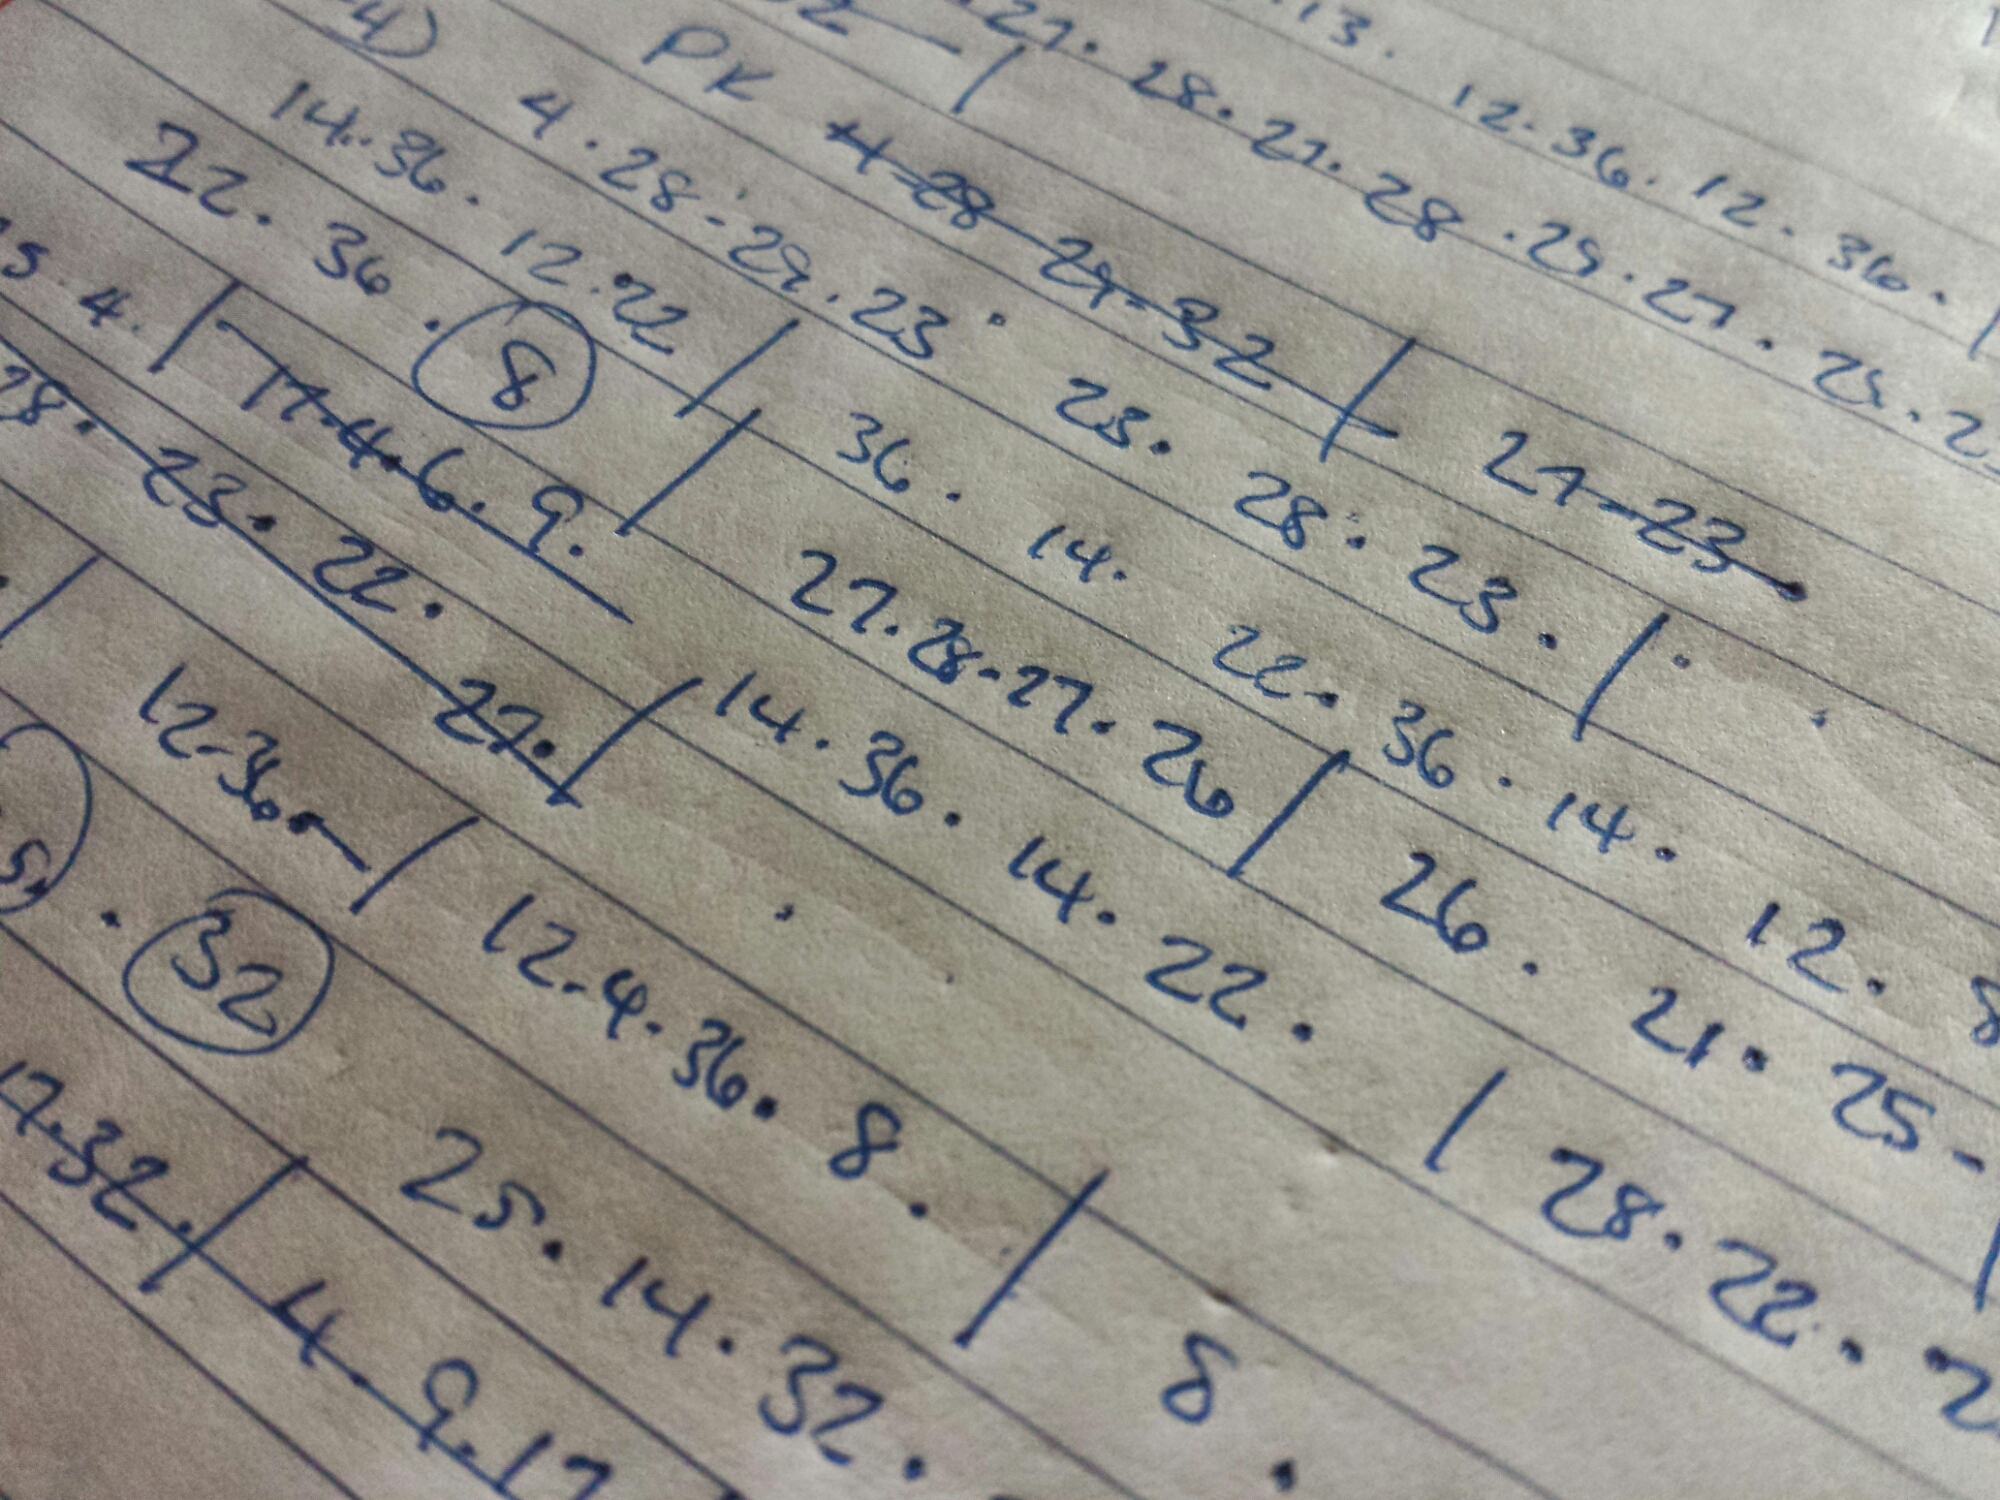 13. 12. 36. 12. 36.
27. 28. 27. 28. 29. 27. 25.
PK 4-28-29-32 | 27-23.
4) 4. 28-29. 23. 23. 28. 23. |
14. 36. 12. 22 | 36. 14. 22. 36. 14. 12. 8
22. 36. 8 | 27. 28-27. 26 | 26. 21. 25-
4. | 17-4. 6. 9. | 14. 36. 14. 22. | 28. 22.
28. 23. 22. 27. |
12-36. | 12-4-36. 8. | 8.
32 25. 14. 32.
17. 32. | 4-9-17